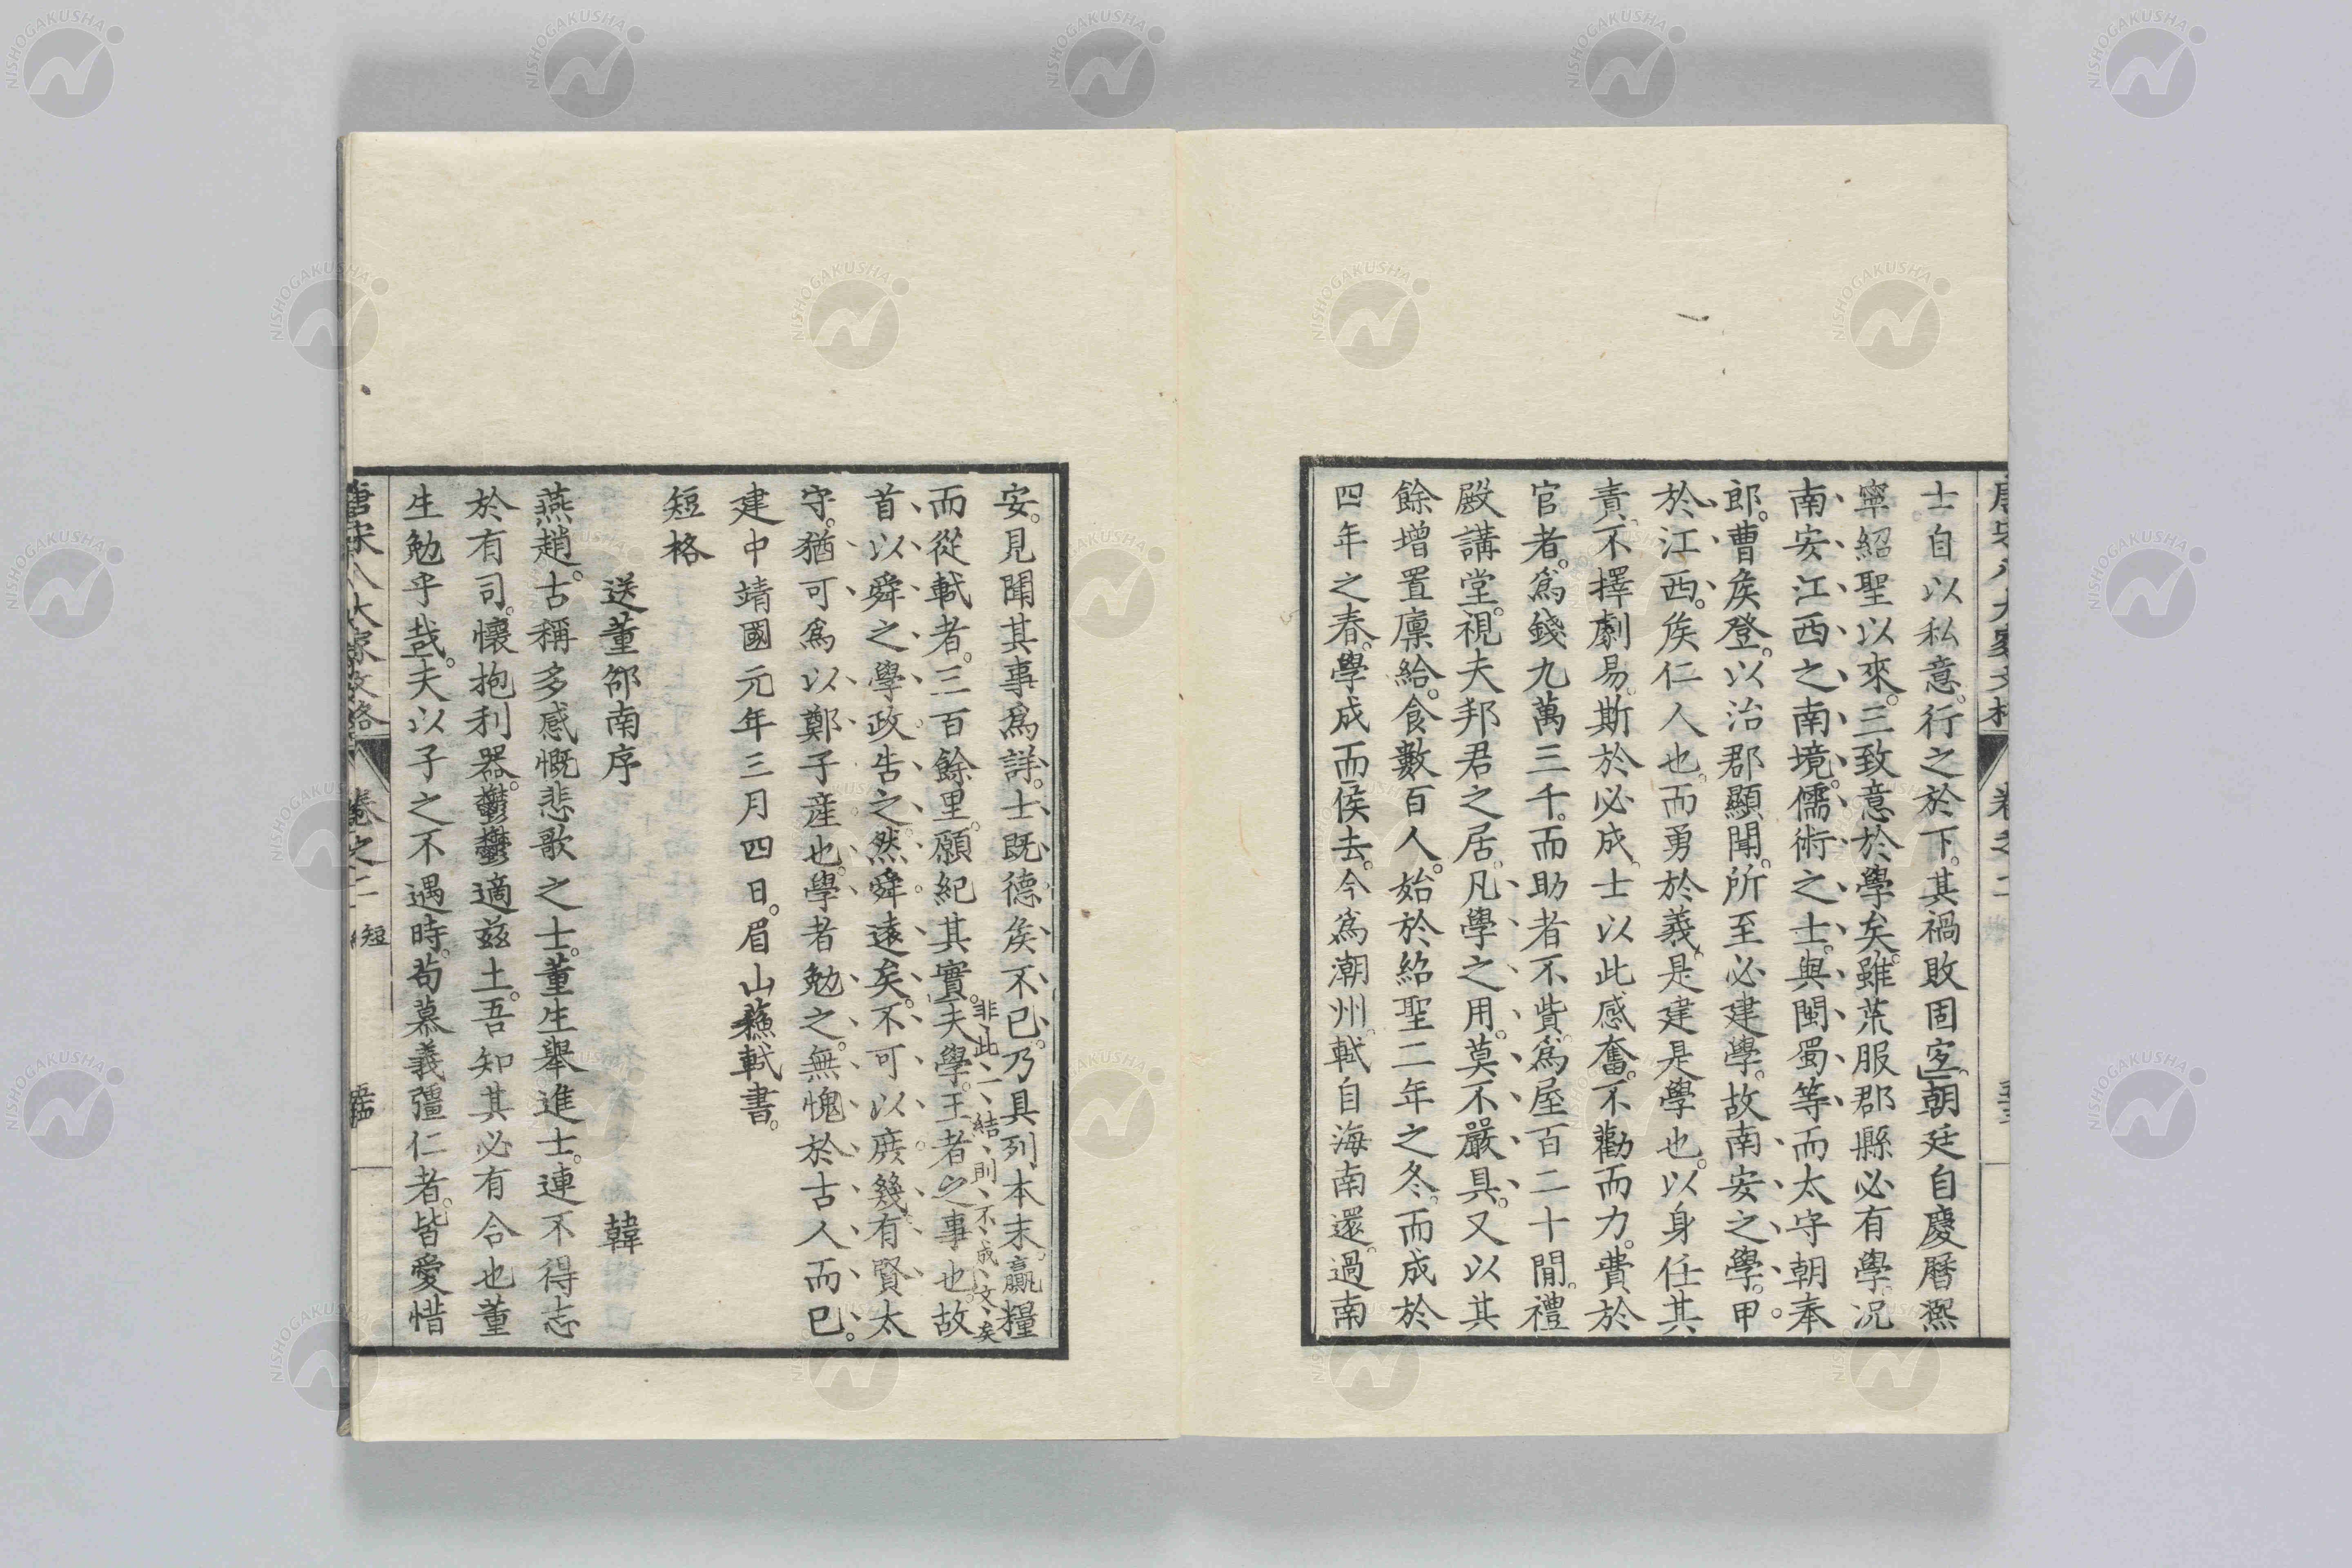 士自以私意。行之於下。其禍敗固宜。」朝廷自慶曆熙
寧紹聖以來。三致意於學矣。雖荒服郡縣必有學。况
南安江西之南境。儒術之士。與閩蜀等。而太守朝奉
郎。曹矦登。以治郡顯聞。所至必建學。故南安之學。甲
於江西。矦仁人也。而勇於義。是建是學也。以身任其
責。不擇劇易。斯於必成。士以此感奮。不勸而力。費於
官者。爲錢九萬三千。而助者不貲。爲屋百二十間。禮
殿講堂。視夫邦君之居。凡學之用。莫不嚴具。又以其
餘增置廩給。食數百人。始於紹聖二年之冬。而成於
四年之春。學成而矦去。今爲潮州。軾自海南還。過南
安。見聞其事爲詳。士既德矦不已。乃具列本末。贏糧
而從軾者。三百餘里。願紀其實。夫學。王者之事也。故
非此一結則不成文矣
首以舜之學政告之。然舜遠矣。不可以庶幾。有賢太
守。猶可爲以鄭子產也。學者勉之。無愧於古人而已。
建中靖國元年三月四日。眉山蘇軾書。
短格
送董邵南序 韓
燕趙。古稱多感慨悲歌之士。董生舉進士。連不得志
於有司。懷抱利器。鬱鬱適茲土。吾知其必有合也董
生勉乎哉。夫以子之不遇時。苟慕義彊仁者。皆愛惜
唐宋八大家文格 卷之二 短